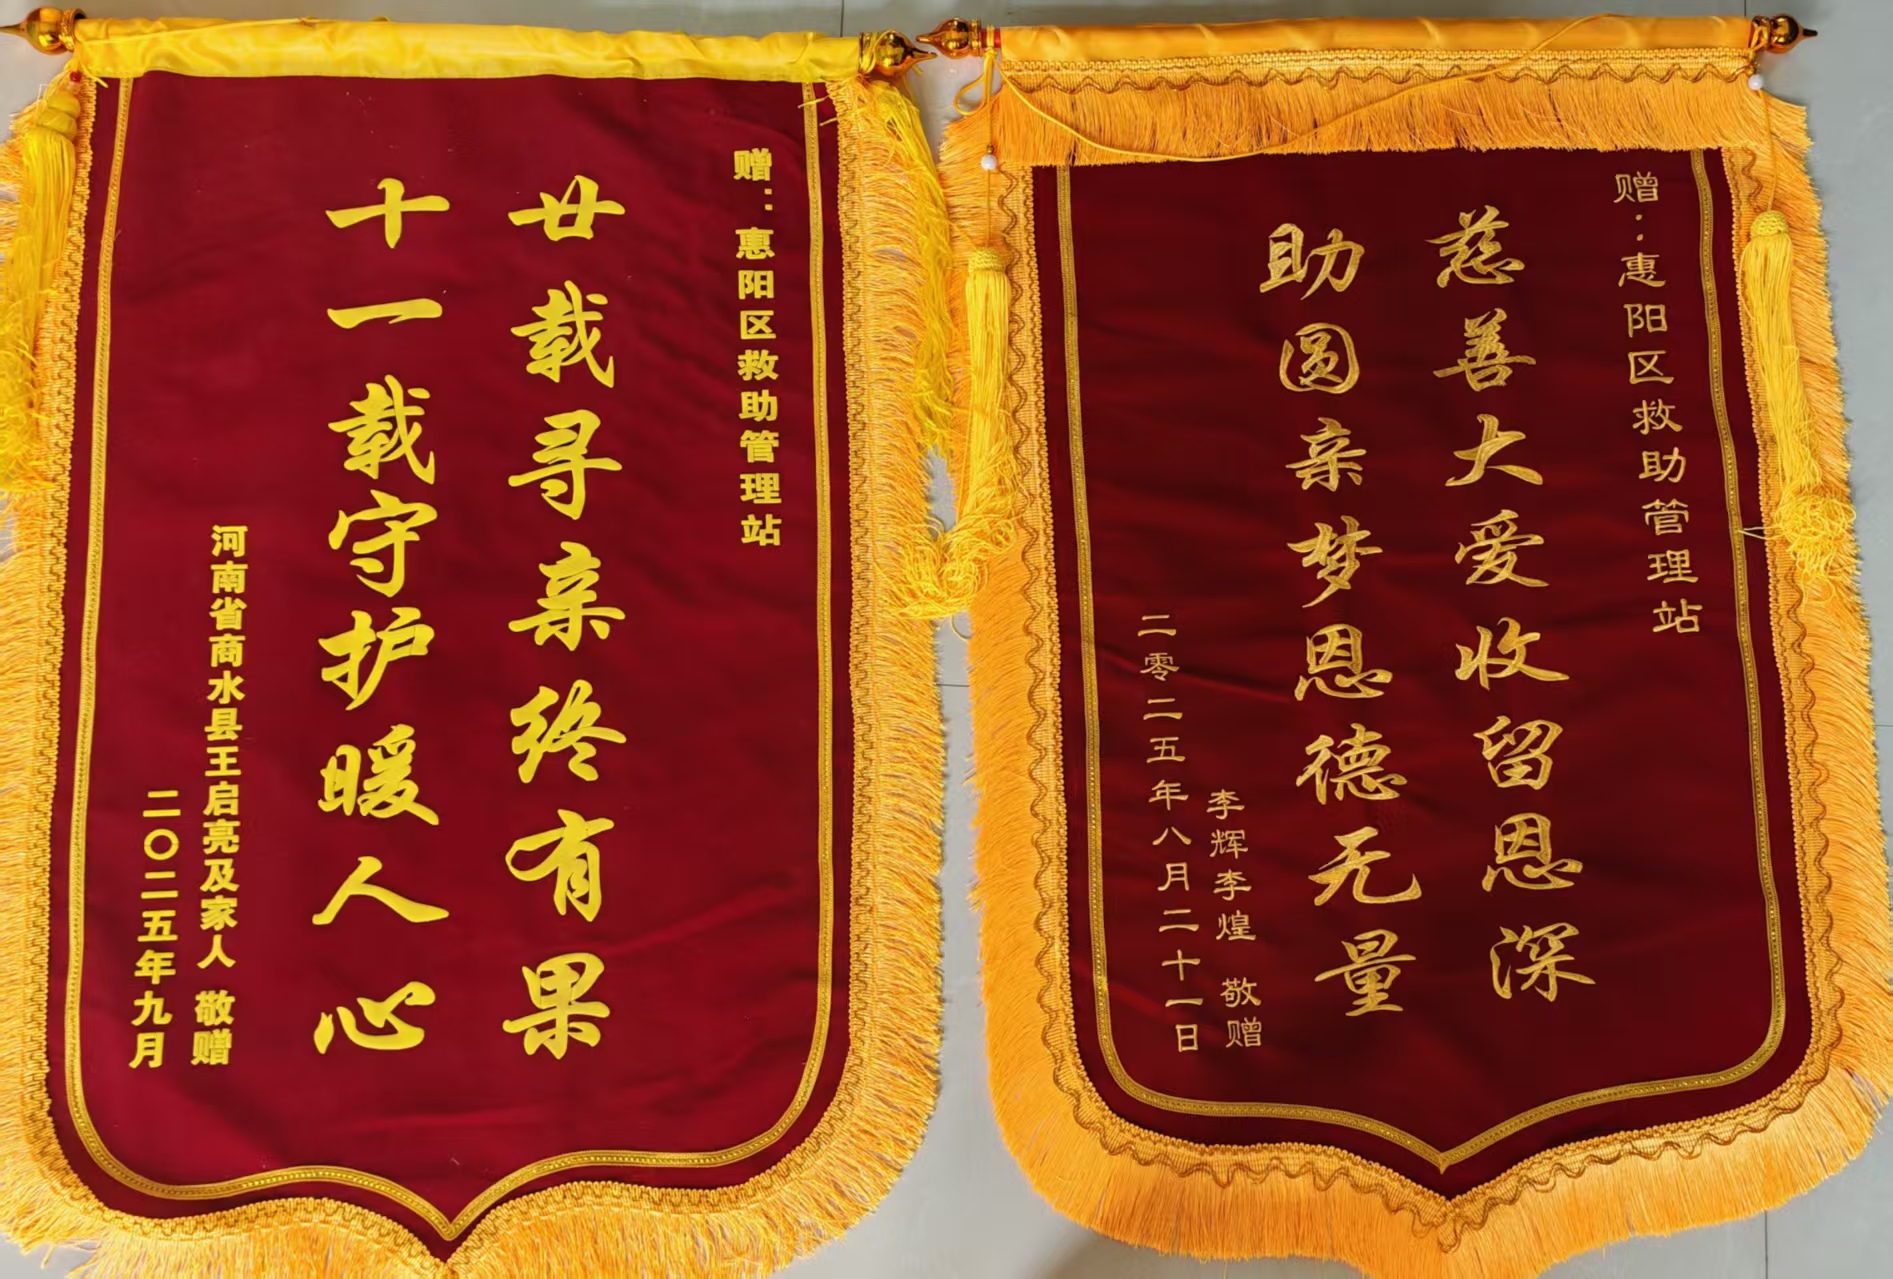 赠：惠阳区救助管理站
廿载寻亲终有果
十一载守护暖人心
河南省商水县王启亮及家人 敬赠
二〇二五年九月
赠：惠阳区救助管理站
慈善大爱收留恩深
助圆亲梦恩德无量
李辉李煌 敬赠
二零二五年八月二十一日